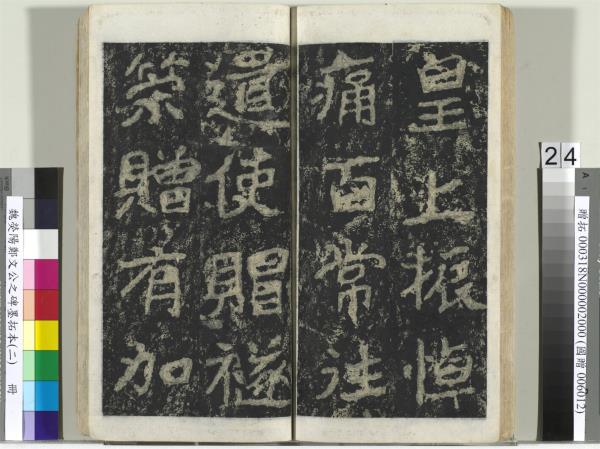 皇上振悼
痛百常往
遣使賵襚
策贈有加
24
贈拓 000318N000002000 (國贈 006012)
魏滎陽鄭文公之碑墨拓本(二) 冊